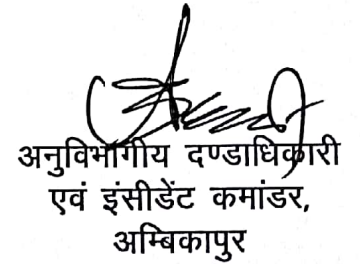 अनुविभागीय दण्डाधिकारी
एवं इंसीडेंट कमांडर,
अम्बिकापुर